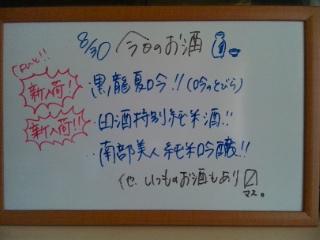 8/30 今日のお酒
新入荷! 黒龍夏吟!! (吟のとびら)
新入荷!! 田酒特別純米酒!!
南部美人純米吟醸!!
他、いつものお酒もあり〼
マス。